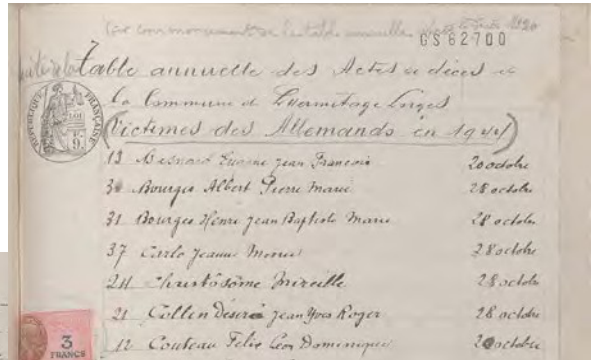 GS 62700
Suite de la table annuelle des Actes de décès de
la Commune de Lhermitage Lorges
(Victimes des Allemands en 1944)
RÉPUBLIQUE FRANÇAISE
13 Besnard Eugène Jean Francois 20 octobre
30 Bourges Albert Pierre Marie 28 octobre
31 Bourges Henri Jean Baptiste Marie 28 octobre
37 Carlo Jeanne 28 octobre
24 Christosôme Mireille 28 octobre
21 Collen Désiré Jean Yves Roger 28 octobre
12 Couteau Felix Léon Dominique 20 octobre
3
FRANCS